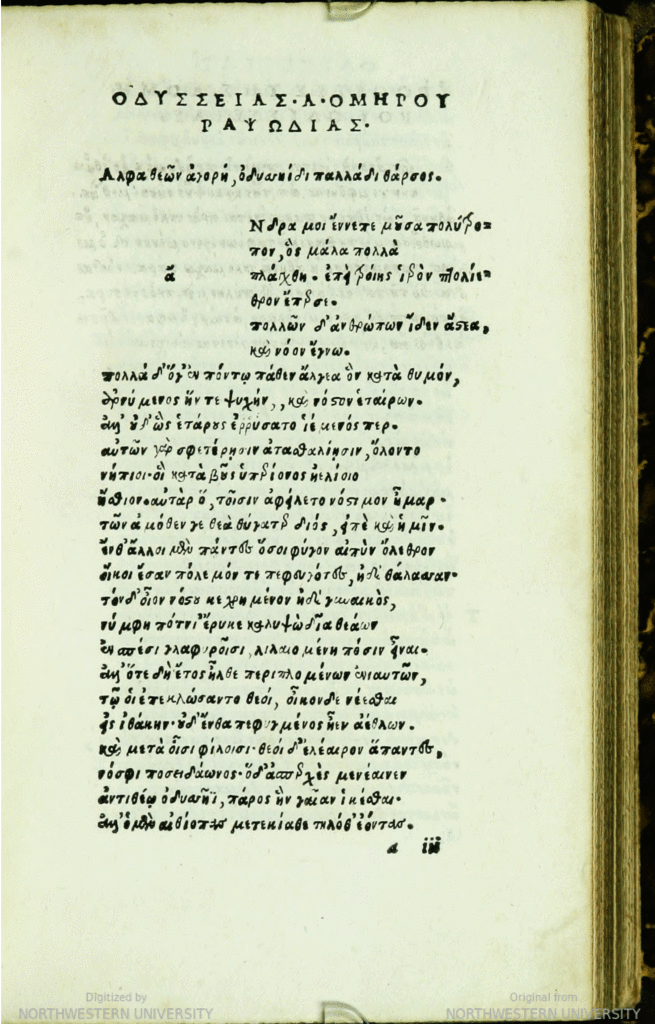 ΟΔΥΣΣΕΙΑΣ·Α·ΟΜΗΡΟΥ
ΡΑΨΩΔΙΑΣ·
Αλφα θεῶν ἀγορή, ὀδυσσηΐδι παλλάδι θάρσος.
Νδρα μοι ἔννεπε μοῦσα πολύτρο=
πον, ὃς μάλα πολλὰ
ἄ
πλάγχθη. ἐπεὶ τροίης ἱερὸν πτολίε=
θρον ἔπερσε.
πολλῶν δ' ἀνθρώπων ἴδεν ἄστεα,
καὶ νόον ἔγνω.
πολλὰ δ' ὅγ' ἐν πόντῳ πάθεν ἄλγεα ὃν κατὰ θυμόν,
ἀρνύμενος ἥν τε ψυχήν,, καὶ νόστον ἑταίρων.
ἀλλ' οὐδ' ὣς ἑτάρους ἐρρύσατο ἱέμενός περ.
αὐτῶν γὰρ σφετέρῃσιν ἀτασθαλίῃσιν, ὄλοντο
νήπιοι· οἳ κατὰ βοῦς ὑπερίονος ἠελίοιο
ἤσθιον. αὐτὰρ ὅ, τοῖσιν ἀφείλετο νόστιμον ἦμαρ.
τῶν ἁμόθεν γε θεὰ θύγατερ διός, εἰπὲ καὶ ἡμῖν.
ἔνθ' ἄλλοι μὲν πάντες ὅσοι φύγον αἰπὺν ὄλεθρον
οἴκοι ἔσαν πόλεμόν τε πεφευγότες, ἠδὲ θάλασσαν·
τὸν δ' οἶον νόστου κεχρημένον ἠδὲ γυναικὸς,
νύμφη πότνι' ἔρυκε καλυψὼ δῖα θεάων
ἐν σπέσι γλαφυροῖσι, λιλαιομένη πόσιν εἶναι.
ἀλλ' ὅτε δὴ ἔτος ἦλθε περιπλομένων ἐνιαυτῶν,
τῷ οἱ ἐπεκλώσαντο θεοί, οἶκονδε νέεσθαι
εἰς ἰθάκην· οὐδ' ἔνθα πεφυγμένος ἦεν ἀέθλων.
καὶ μετὰ οἷσι φίλοισι· θεοὶ δ' ἐλέαιρον ἅπαντες,
νόσφι ποσειδάωνος· ὅδ' ἀσπερχὲς μενέαινεν
ἀντιθέῳ ὀδυσσῆϊ, πάρος ἣν γαῖαν ἱκέσθαι.
ἀλλ' ὁ μὲν αἰθίοπας μετεκίαθε τηλόθ' ἐόντας.
a iii
Digitized by
NORTHWESTERN UNIVERSITY
Original from
NORTHWESTERN UNIVERSITY